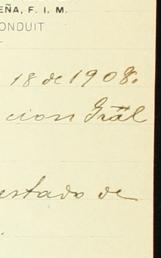 EÑA, F. I. M.
ONDUIT
18 de 1908.
cion Gräl
estado de